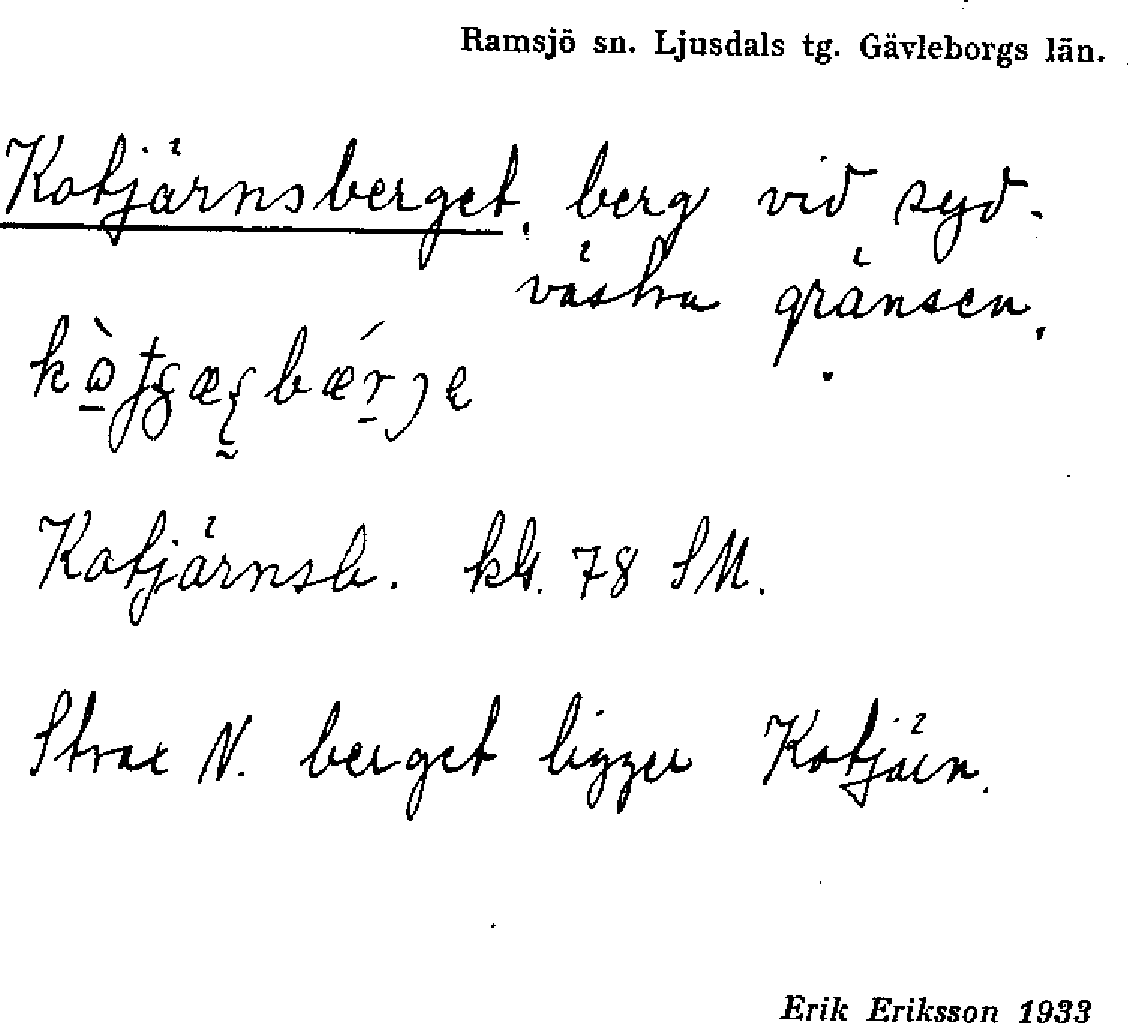 Ramsjö sn. Ljusdals tg. Gävleborgs län.
Kotjärnsberget, berg vid syd-
västra gränsen.
Kotjärnsb. kbl. 78 SM.
Strax N. berget ligger Kotjärn.
Erik Eriksson 1933